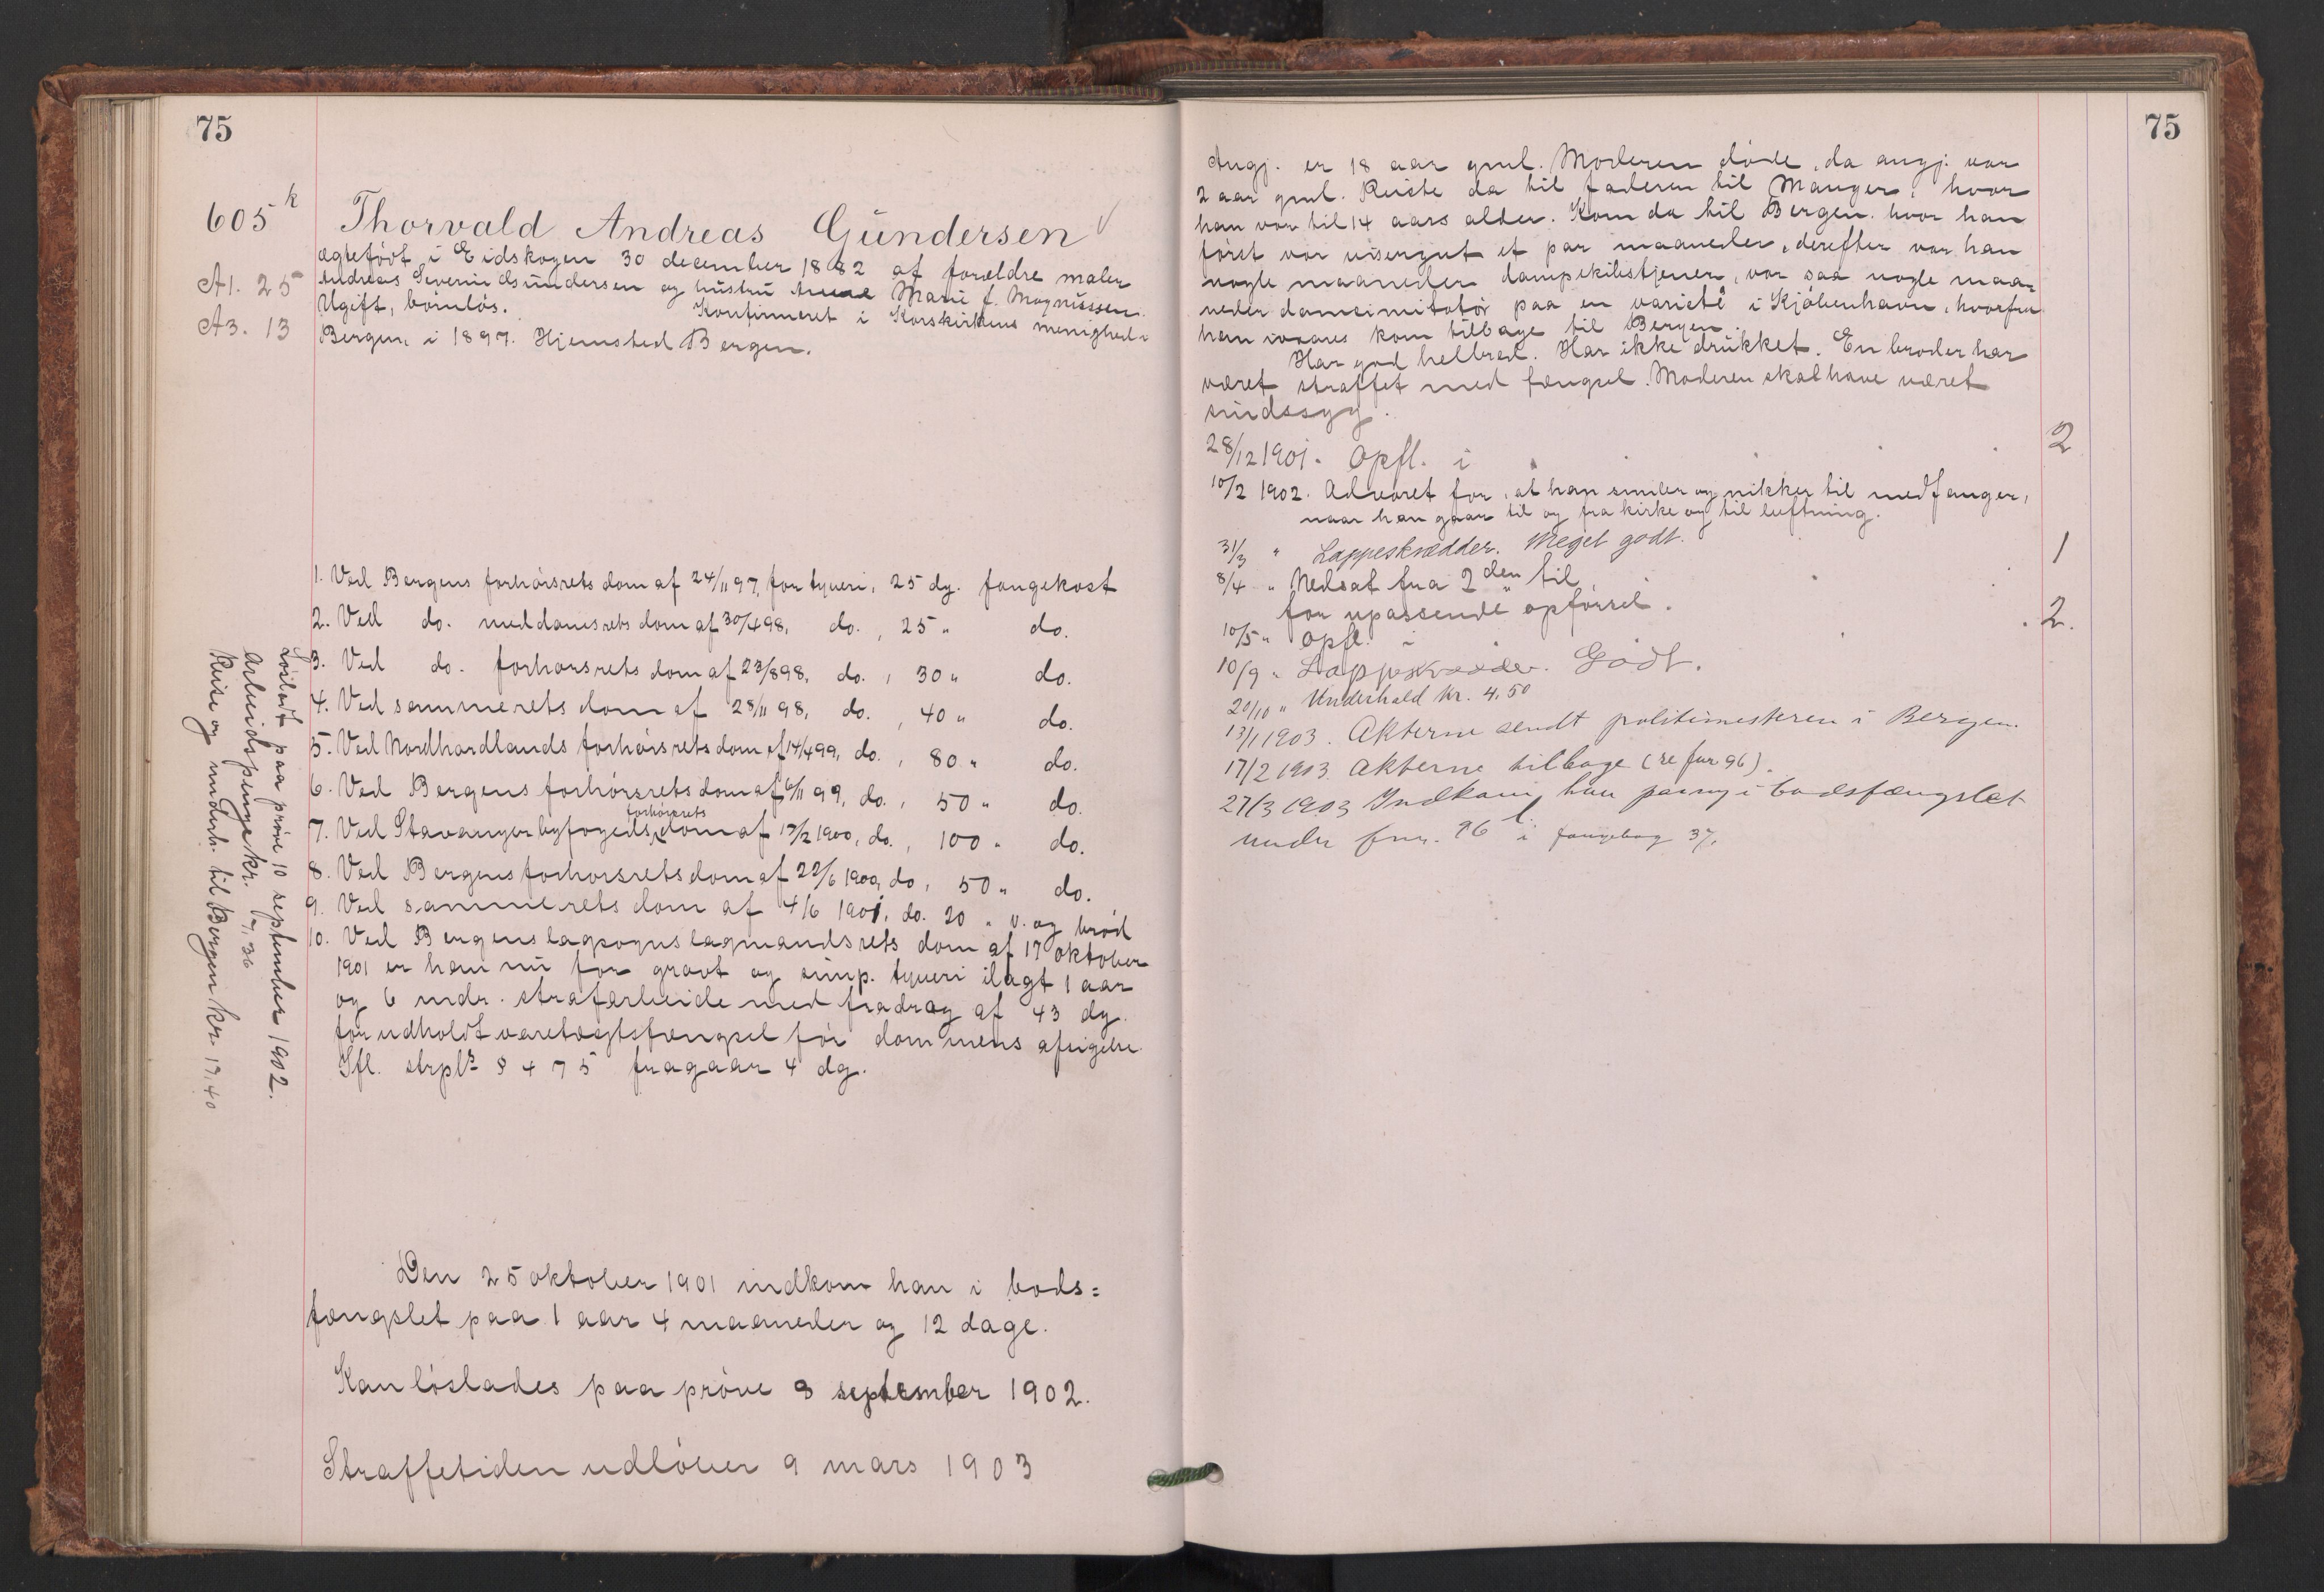 75
605 k
A1. 25
A3. 13
Thorvald Andreas Gundersen
ægtefödt i Eidskogen 30 december 1882 af forældre maler
Andreas Severin Gundersen og hustru Anne Marie f. Magnussen.
Ugift, börnlös. Konfirmeret i Korskirkens menighed i
Bergen, i 1897. Hjemsted Bergen.
1. Ved Bergens forhörsrets dom af 24/11 97, for tyveri, 25 dg. fangekost
2. Ved do. meddomsrets dom af 30/4 98, do., 25 " do.
3. Ved do. forhörsrets dom af 23/8 98, do., 30 " do.
4. Ved sammerets dom af 28/11 98, do., 40 " do.
5. Ved Nordhordlands forhörsrets dom af 14/4 99, do., 80 " do.
6. Ved Bergens forhörsrets dom af 6/11 99, do., 50 " do.
forhörsrets
7. Ved Stavanger byfogeds dom af 13/2 1900, do., 100 " do.
8. Ved Bergens forhörsrets dom af 22/6 1900, do, 50 " do.
9. Ved sammerets dom af 4/6 1901, do. 20 " v. og bröd
10. Ved Bergens lagsogns lagmandsrets dom af 17 oktober
1901 er han nu for grovt og simp. tyveri ilagt 1 aar
og 6 mdr. strafarbeide med fradrag af 43 dg.
for udholdt varetægtsfængsel för dommens afsigelse.
Ifl. strpl's § 475 fragaar 4 dg.
Lösladt paa pröve 10 september 1902.
Arbeidspenge kr. 7,36
Reise og underh. til Bergen kr. 17,40
Den 25 oktober 1901 indkom han i bods=
fængslet paa 1 aar 4 maaneder og 12 dage.
Kan löslades paa pröve 9 september 1902.
Straffetiden udlöber 9 mars 1903
75
Angj. er 18 aar gml. Moderen döde, da angj. var
2 aar gml. Reiste da til faderen til Manger, hvor
han var til 14 aars alder. Kom da til Bergen, hvor han
först var visergut et par maaneder, derefter var han
nogle maaneder dampskibstjener, var saa nogle maa-
neder damsimitatör paa en varieté i Kjöbenhavn, hvorfra
han ivaares kom tilbage til Bergen.
Har god helbred. Har ikke drukket. En broder har
været straffet med fængsel. Moderen skal have været
sindssyg.
28/12 1901. Opfl. i 2
10/2 1902. Advaret for, at han smiler og nikker til medfanger,
naar han gaar til og fra kirke og til luftning.
31/3 " Lappeskrædder. Meget godt.
8/4 " Nedsat fra 2den til 1
for upassende opförsel.
10/5 " Opfl. i 2.
10/9 " Lappeskrædder. Godt.
20/10 " Underhold kr. 4,50
13/1 1903. Akterne sendt politimesteren i Bergen.
17/2 1903. Akterne tilbage (se fnr 96).
27/3 1903 Indkom han paany i bodsfængslet
under fnr. 96 l. i fangebog 37.